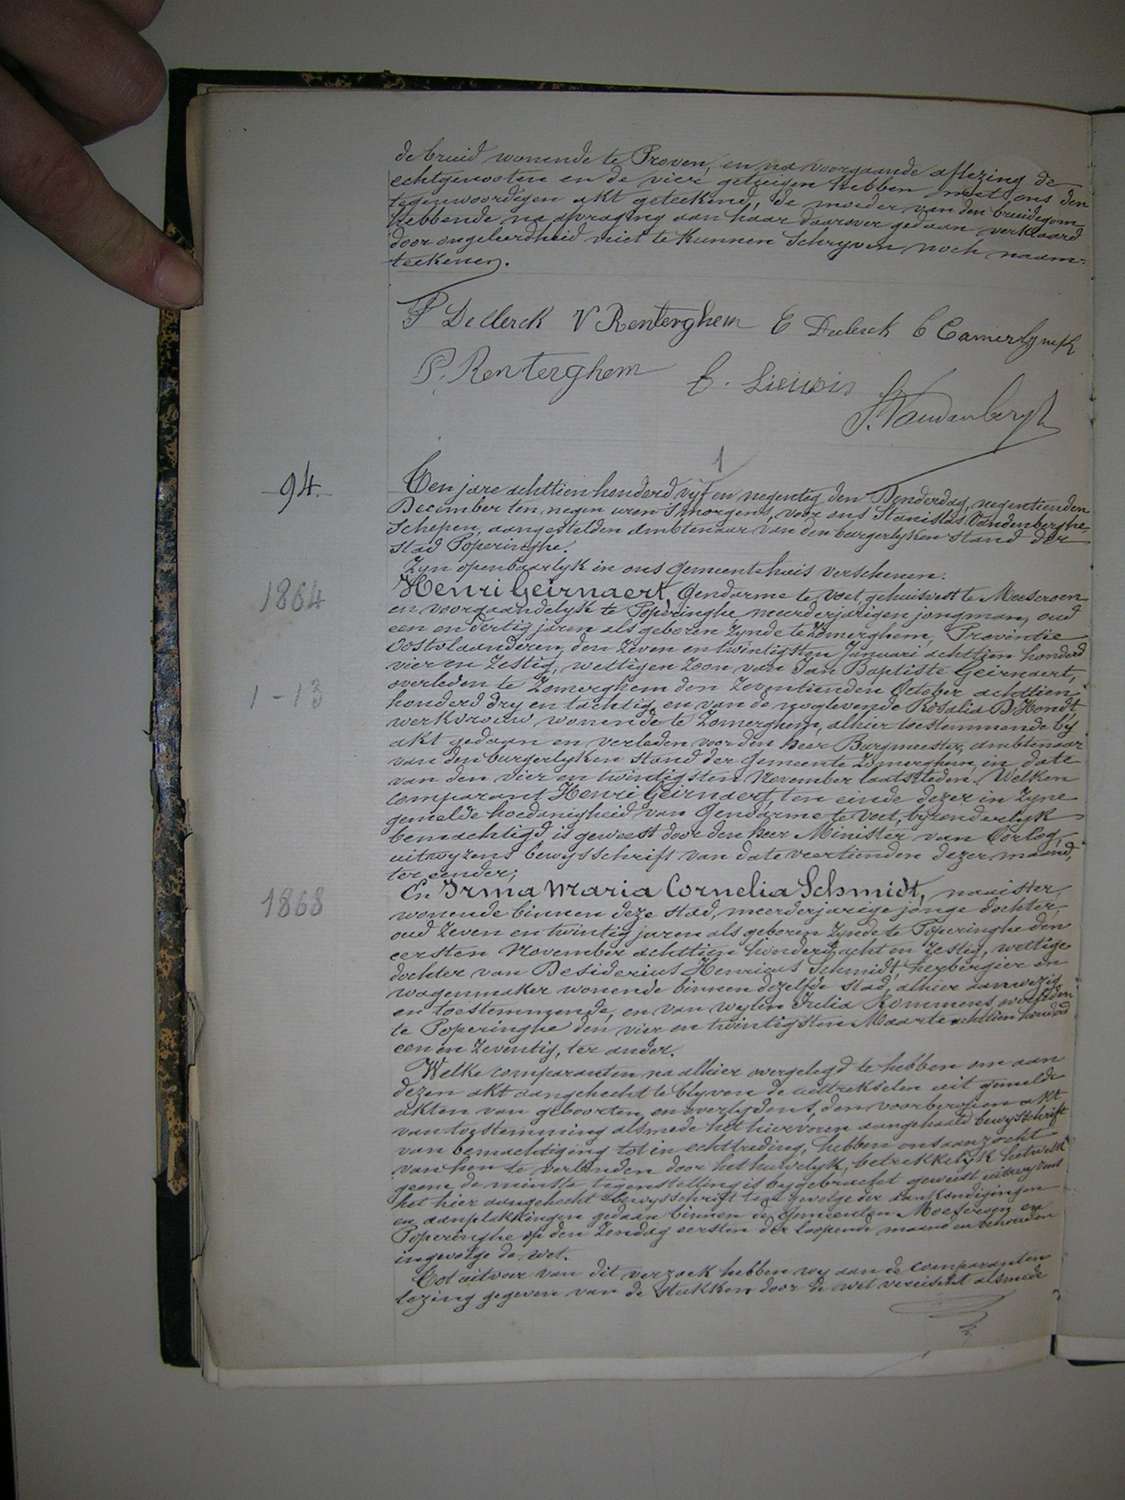 de bruid wonende te Proven, en na voorgaande aflezing de
echtgenooten en de vier getuigen hebben met ons den
tegenwoordigen akt geteekend, de moeder van den bruidegom
hebbende na afvraging aan haar daarover gedaan verklaard
door ongeleerdheid niet te kunnen schryven noch naam-
teekenen.
P Declerck V Renterghem E Declerck C Camerlynck
P. Renterghem C. Lieuwis
S. Vandenberghe
1
94.
Ten jare achttien honderd vyf en negentig den Donderdag, negentienden
December ten negen uren 's morgens, voor ons Stanislas Vandenberghe
Schepen, aangestelden ambtenaar van den burgerlyken stand der
stad Poperinghe.
Zyn openbaarlyk in ons gemeentehuis verschenen:
1864
Henri Geirnaert, Gendarme te voet gehuisvest te Moescroen
en voorgaandelyk te Poperinghe meerderjarigen jongman, oud
een en dertig jaren als geboren zynde te Zomerghem, Provintie
Oostvlaanderen, den zeven en twintigsten Januari achttien honderd
vier en zestig, wettigen zoon van Jan Baptiste Geirnaert,
1 - 13
overleden te Zomerghem den zeventienden October achttien
honderd dry en tachtig en van de nog levende Rosalia D'Hondt
werkvrouw, wonende te Zomerghem, alhier toestemmende by
akt gedaan en verleden voor den Heer Burgmeester, ambtenaar
van den burgerlyken stand der Gemeente Zomerghem, in date
van den vier en twintigsten November laatstleden. Welken
comparant Henri Geirnaert, ten einde dezer in zyne
gemelde hoedanigheid van Gendarme te voet, byzonderlyk
bemachtigd is geweest door den heer Minister van Oorlog,
uitwyzens bewysschrift van date veertienden dezer maand,
ter eender;
1868
En Irma Maria Cornelia Schmidt, naaister,
wonende binnen deze stad, meerderjarige jonge dochter,
oud zeven en twintig jaren als geboren zynde te Poperinghe den
eersten November achttien honderd acht en zestig, wettige
dochter van Desiderius Henricus Schmidt, herbergier en
wagenmaker wonende binnen dezelfde stad, alhier aanwezig
en toestemmende, en van wylen Julia Rommens overleden
te Poperinghe den vier en twintigsten Maarte achttien honderd
een en zeventig, ter ander.
Welke comparanten na alhier overgelegd te hebben om aan
dezen akt aangehecht te blyven de uittrekselen uit gemelde
akten van geboorten en overlydens, den voorberoepen akt
van toestemming alsmede het hiervoren aangehaald bewysschrift
van bemachtiging tot in echttreding, hebben ons aanzocht
van hen te verbinden door het huwelyk, betrekkelyk hetwelk
geene de minste tegenstelling is bygebracht geweest uitwyzens
het hier aangehecht bewysschrift ten gevolge der aankondigingen
en aanplakkingen gedaan binnen de gemeenten Moescroen en
Poperinghe op den Zondag eersten der loopende maand en behouden
ingevolge de wet.
Tot uitvoer van dit verzoek hebben wy aan de comparanten
lezing gegeven van de stukken door de wet vereischt alsmede